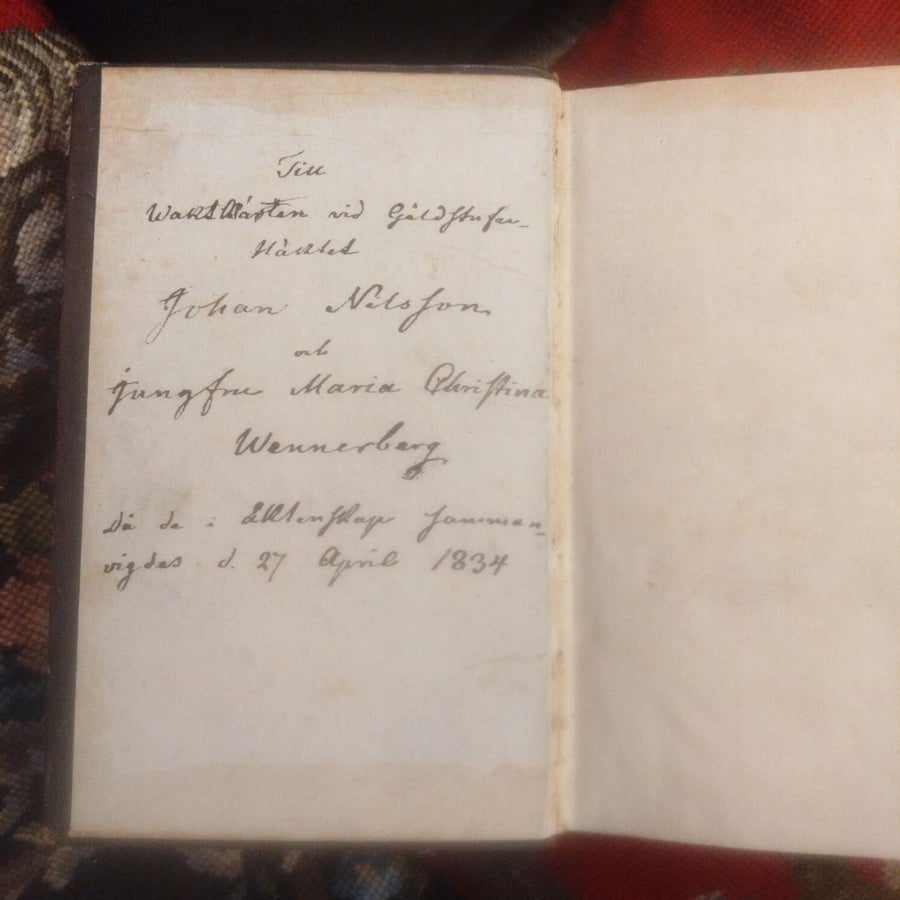 Till
Waktkarlen vid Gäldstufu-
Häktet
Johan Nilsson
och
jungfru Maria Christina
Wennerberg
Då de i Ektenskap samman-
vigdes d. 27 April 1834